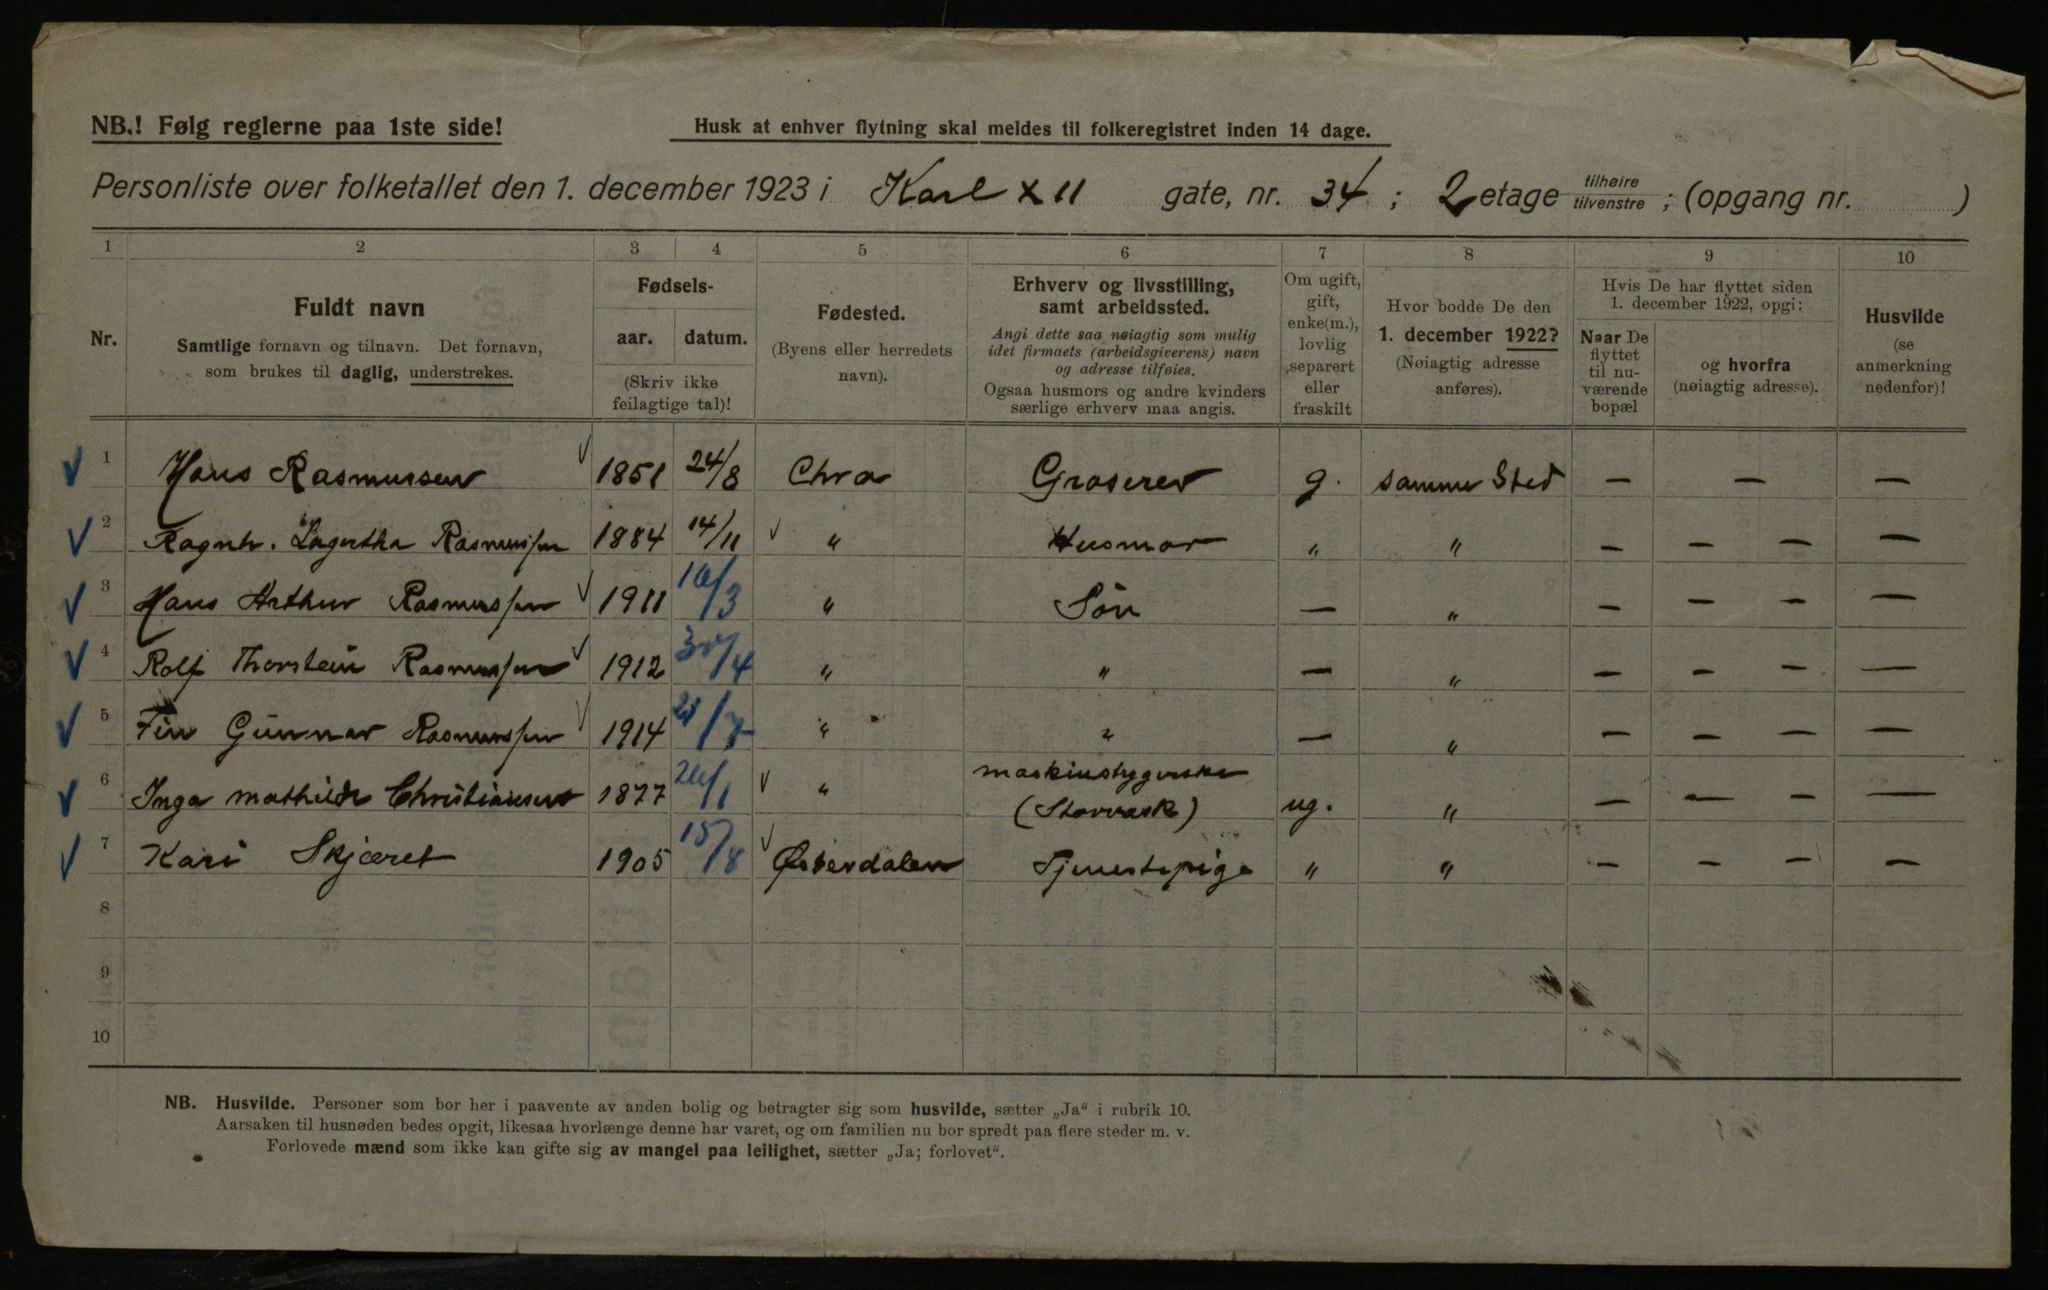 NB.! Følg reglerne paa 1ste side!
Husk at enhver flytning skal meldes til folkeregistret inden 14 dage.
Personliste over folketallet den 1. december 1923 i Karl XII gate, nr. 34 ; 2 etage tilhøire tilvenstre ; (opgang nr. )
1 2 3 4 5 6 7 8 9 10
Nr.
Fuldt navn
Samtlige fornavn og tilnavn. Det fornavn,
som brukes til daglig, understrekes.
Fødsels-
aar. datum.
(Skriv ikke
feilagtige tal)!
Fødested.
(Byens eller herredets
navn).
Erhverv og livsstilling,
samt arbeidssted.
Angi dette saa nøiagtig som mulig
idet firmaets (arbeidsgiverens) navn
og adresse tilføies.
Ogsaa husmors og andre kvinders
særlige erhverv maa angis.
Om ugift,
gift,
enke(m.),
lovlig
separert
eller
fraskilt
Hvor bodde De den
1. december 1922?
(Nøiagtig adresse
anføres).
Hvis De har flyttet siden
1. december 1922, opgi:
Naar De
flyttet
til nu-
værende
bopæl
og hvorfra
(nøiagtig adresse).
Husvilde
(se
anmerkning
nedenfor)!
1 Hans Rasmussen 1851 24/8 Chra Groserer g. samme Sted — — —
2 Ragnh. Lagertha Rasmussen 1884 14/11 " Husmor " " — — — —
3 Hans Arthur Rasmussen 1911 16/3 " Søn — " — — — —
4 Rolf Thorstein Rasmussen 1912 30/4 " " — " — — — —
5 Finn Gunnar Rasmussen 1914 " " — " — — — —
6 Inga Mathilde Christiansen 1877 26/1 " maskinstrygerske
(Storvask) ug. " — — — —
7 Kari Skjæret 1905 15/8 Østerdalen Tjenestepige " " — — — —
8
9
10
NB. Husvilde. Personer som bor her i paavente av anden bolig og betragter sig som husvilde, sætter „Ja“ i rubrik 10.
Aarsaken til husnøden bedes opgit, likesaa hvorlænge denne har varet, og om familien nu bor spredt paa flere steder m. v.
Forlovede mænd som ikke kan gifte sig av mangel paa leilighet, sætter „Ja; forlovet“.